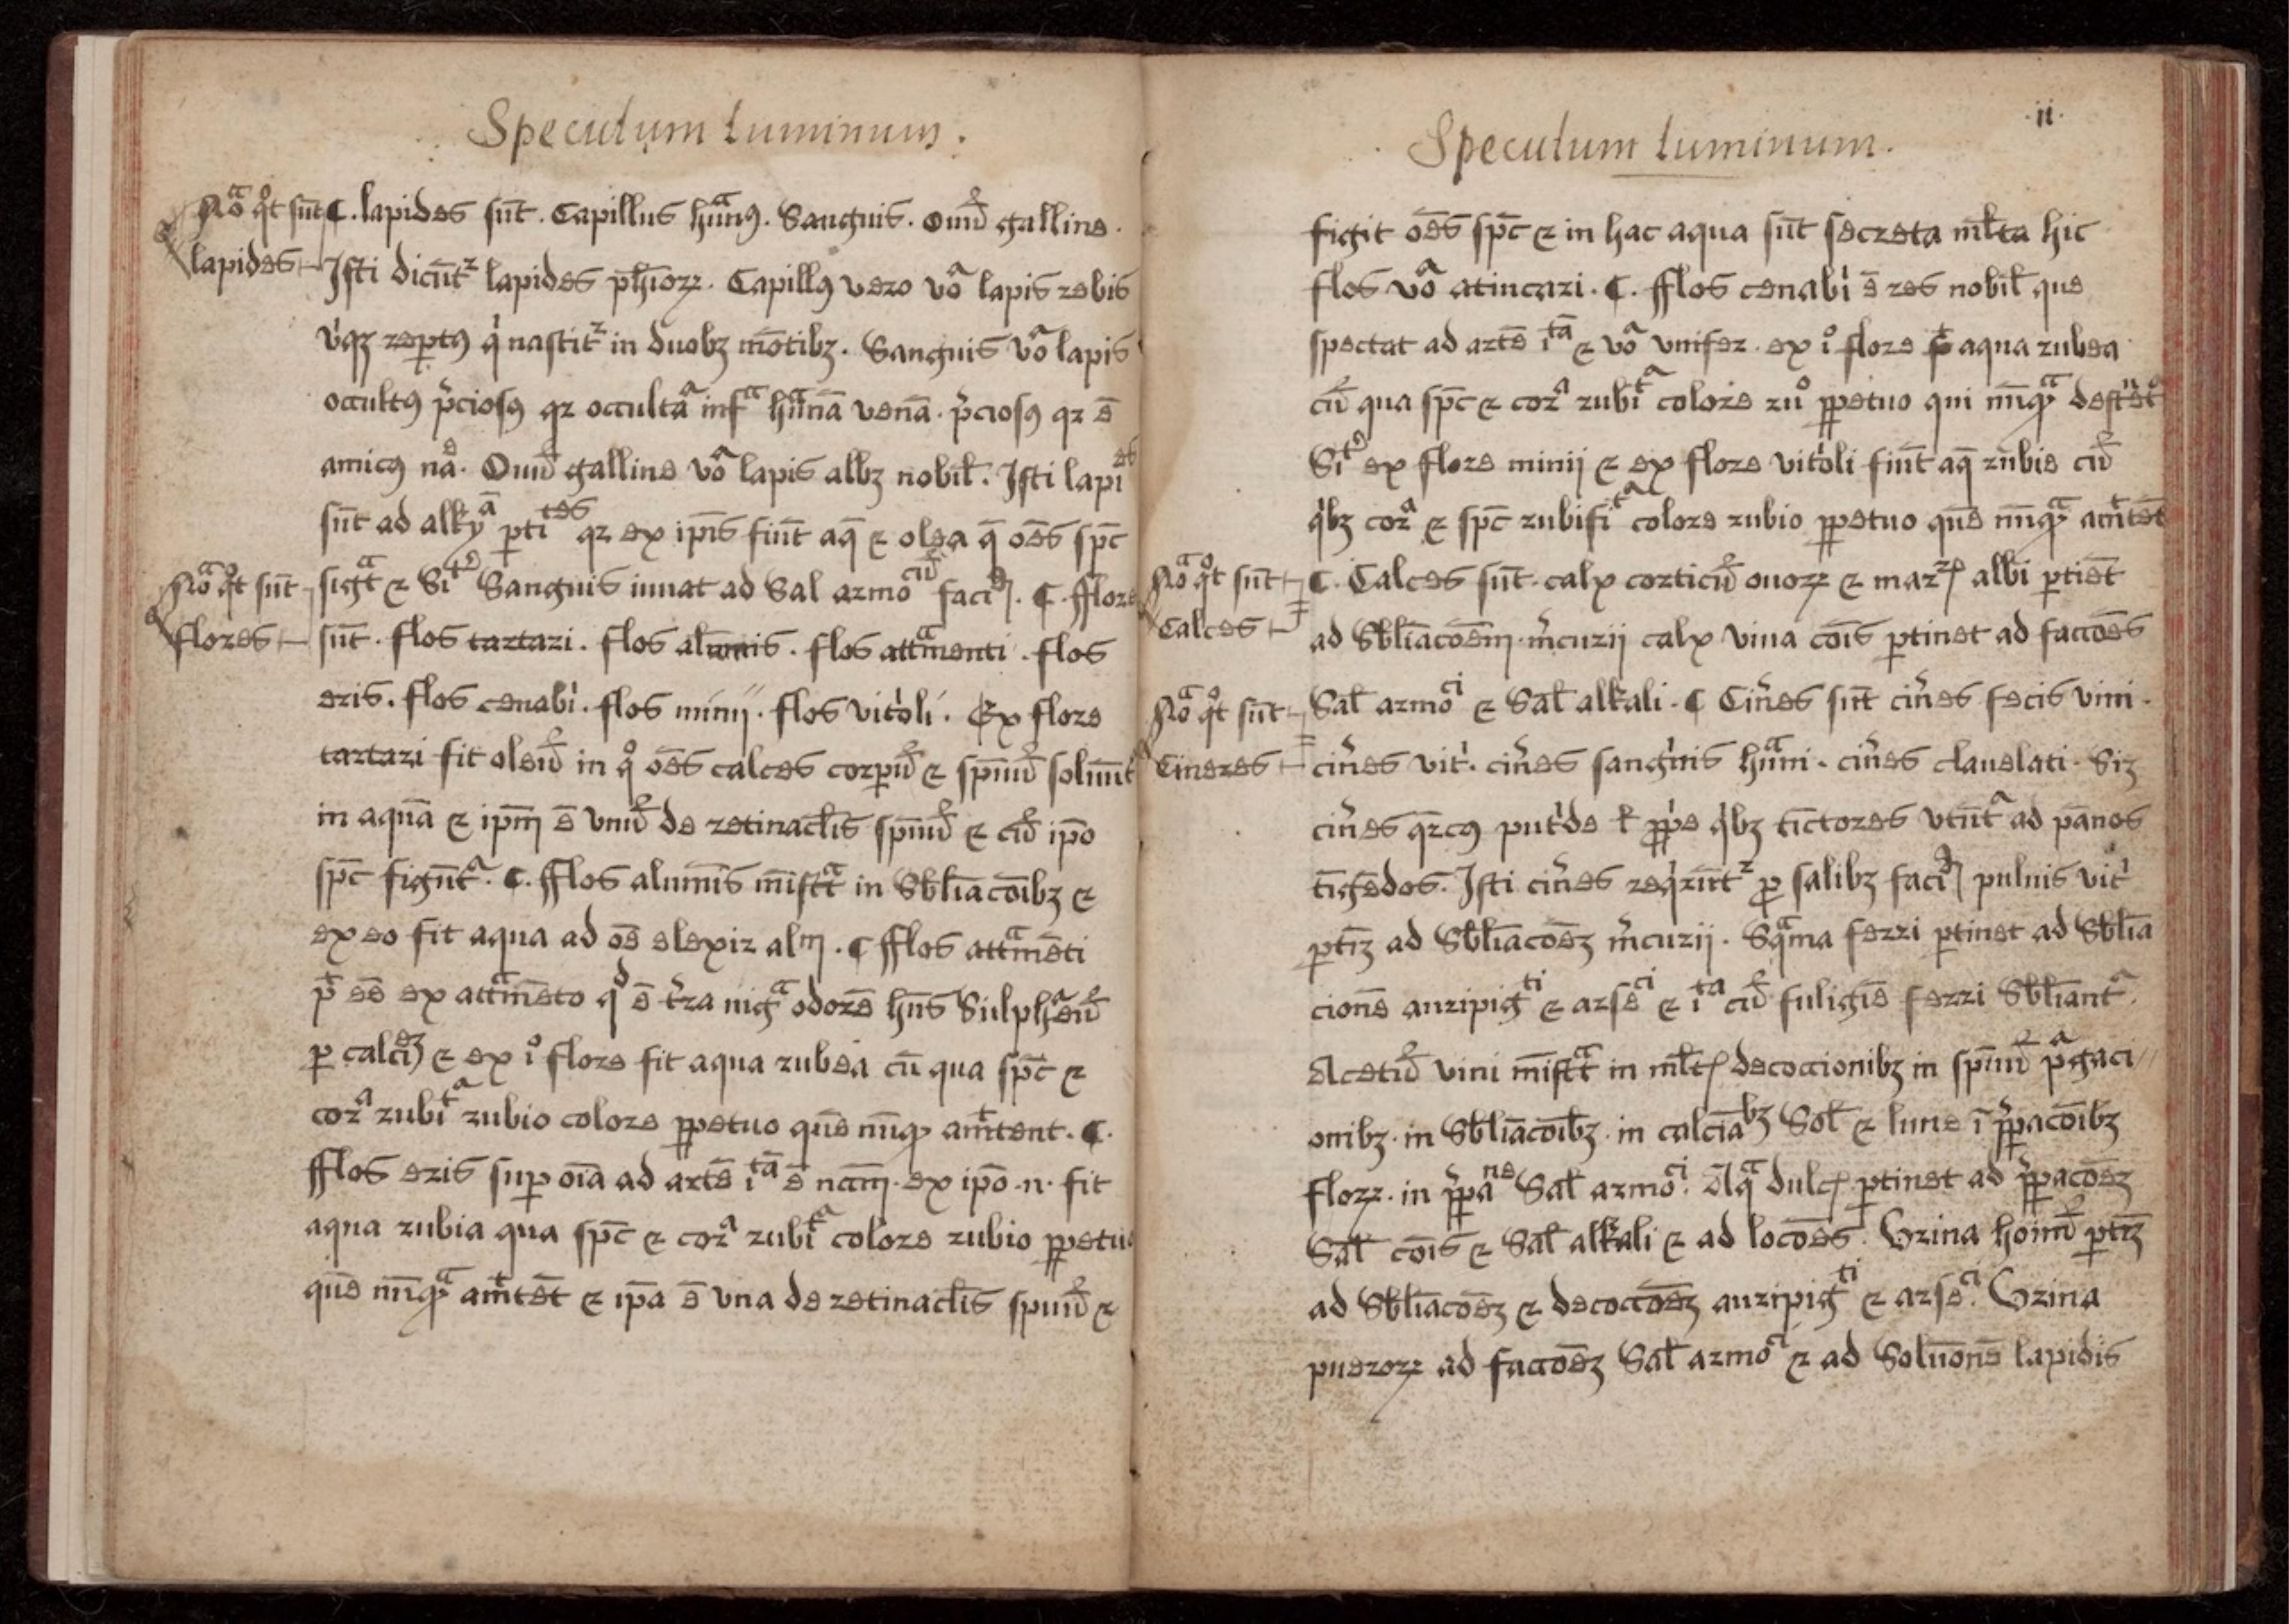 Speculum luminum.
Nōᵃ qͦt sūt
lapides
C. lapides sūt. Capillus hūᵃnꝰ. Sanguis. Ouū galline.
Isti dicūtʳ lapides ph̄ioꝝ. Capillꝰ vero voᵃ lapis rebis
vͥqꝫ reꝑtꝰ qͥ nascitʳ in duobꝫ mōtibꝫ. Sanguis voᵃ lapis
occultꝰ p̄ciosꝰ qꝛ occultaᵃ infᵃ hūᵃnā venā. p̄ciosꝰ qꝛ ē
amicꝰ naᵉ. Ouū galline voᵃ lapis albꝫ nobil̄. Isti lapiᵉˢ
sūt ad alkyᵃ̄ ꝑtiᵗᵉˢ qꝛ ex ip̄is fiūt aq̄ ⁊ olea q̄ oēs sp̄c
Nōᵃ qͦt sūt
flores
figūtᵃ ⁊ Siᵗᵉʳ Sanguis iuuat ad Sal armoᶜⁱᵘ̄ faciᵈ. C. fflores
sūt. flos tartari. flos aluminis. flos attᵃmenti. flos
eris. flos cenabͥ. flos minij. flos vitͥoli. Ex flore
tartari fit oleū in qͦ oēs calces corꝑū ⁊ sp̄iuū soluūt
in aquā ⁊ ip̄m ē vnū de retinacl̄is sp̄iuū ⁊ cū ip̄o
sp̄c figūtᵃ. C. fflos alumīs mīstᵃt in Sbl̄iacōibꝫ ⁊
ex eo fit aqua ad oē elexir alᵐ. C fflos attᵃmēti
pᵗ eē ex attᵃmēto qᵈ ē tͥra nigᵃ odorē hn̄s Sulphᵃeū
ꝑ calciᵉꝫ ⁊ ex iͦ flore fit aqua rubea cū qua sp̄c ⁊
corᵃ rubiᵗᵃ rubio colore ꝑpetuo quē nūqᵃ am̄tent. C.
fflos eris suꝑ oīa ad artē iᵗᵃ̄ ē ncām. ex ip̄o .n. fit
aqua rubia qua sp̄c ⁊ corᵃ rubiᵗᵃ colore rubio ꝑpetuo
quē nūqᵃ am̄tēt ⁊ ip̄a ē vna de retinacl̄is spiuū ⁊
Speculum luminum.
.ii.
figit oēs sp̄c ⁊ in hac aqua sūt secreta ml̄ta hic
flos voᵃ atincari. C. fflos cenabͥ ē res nobil̄ que
spectat ad artē iᵗᵃ̄ ⁊ voᵃ vnifer. ex iͦ flore fᵗ aqua rubea
cū qua sp̄c ⁊ corᵃ rubiᵗᵃ colore ruͦ ꝑpetuo qui nūqᵃ
Siᵗᵉʳ ex flore minij ⁊ ex flore vitͥoli fiūt aq̄ rubie cū
qͥbꝫ corᵃ ⁊ sp̄c rubifiᵗᵃ colore rubio ꝑpetuo quē nūqᵃ am̄tēt
Nōᵃ qͦt sūt
Calces
C. Calces sūt. calx corticū ouoꝝ ⁊ albi ꝑtiēt
ad Sbl̄iacōem m̄curij calx viua cōis ꝑtinet ad faccōes
Nōᵃ qͦt sūt
Cineres
Sal̄ armoᶜⁱ ⁊ Sal̄ alkali. C Cin̄es sūt cin̄es fecis vini.
cin̄es vitͥ. cin̄es sangͥnis hūᵃni. cin̄es clauelati. Siꝫ
cin̄es q̄rcꝰ putͥde ł ꝓpͥe qͥbꝫ tīctores vtūtᵃ ad pānos
tīgēdos. Isti cin̄es reqͥrūtʳ ꝓ salibꝫ faciᵈ puluis vitͥ
ꝑtīꝫ ad Sbl̄iacōeꝫ m̄curij. Sqᵃma ferri ꝑtinet ad Sbl̄ia
cionē auripigᵗⁱ ⁊ arseᶜⁱ ⁊ iᵗᵃ cū fuligiē ferri Sbl̄iantᵃ.
Acetū vini mīstᵃt in decoccionibꝫ in sp̄iuū pᵃgaci//
onibꝫ. in Sbl̄iacōibꝫ. in calciaᵇꝫ Sol̄ ⁊ lune ī p̄ꝑacōibꝫ
floꝝ. in p̄ꝑaⁿᵉ Sal̄ armoᶜⁱ. Aqᵃ dulcꝭ ꝑtinet ad p̄ꝑacōeꝫ
Sal̄ cōis ⁊ Sal̄ alkali ⁊ ad locōes. Vrina homū ꝑtīꝫ
ad Sbl̄iacōeꝫ ⁊ decoccōeꝫ auripigᵗⁱ ⁊ arseᶜⁱ. Vrina
pueroꝝ ad faccōeꝫ Sal̄ armoᶜⁱ ⁊ ad Soluōnē lapidis